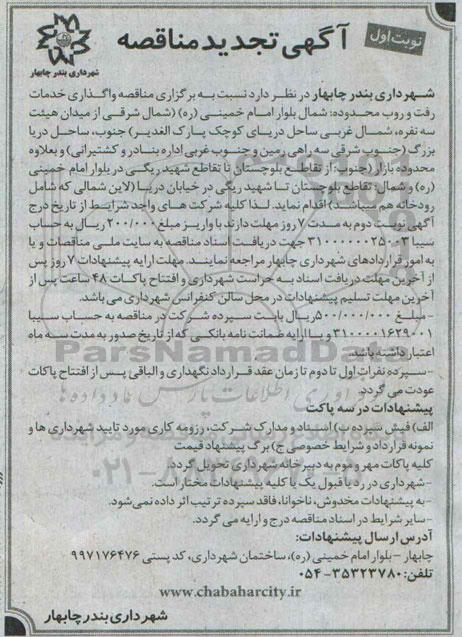 نوبت اول
آگهی تجدید مناقصه
شهرداری بندر چابهار
شهرداری بندر چابهار در نظر دارد نسبت به برگزاری مناقصه واگذاری خدمات
رفت و روب محدوده: شمال بلوار امام خمینی (ره) (شمال شرقی از میدان هیئت
سه نفره، شمال غربی ساحل دریای کوچک پارک الغدیر) جنوب، ساحل دریا
بزرگ (جنوب شرقی سه راهی زمین و جنوب غربی اداره بنادر و کشتیرانی) و بعلاوه
محدوده بازار (جنوب: از تقاطع بلوچستان تا تقاطع شهید ریگی در بلوار امام خمینی
(ره) و شمال: تقاطع بلوچستان تا شهید ریگی در خیابان دریا (لاین شمالی که شامل
رودخانه هم میباشد) اقدام نماید. لذا کلیه شرکت های واجد شرایط از تاریخ درج
آگهی نوبت دوم به مدت ۷ روز مهلت دارند با واریز مبلغ ۲۰۰/۰۰۰ ریال به حساب
سیبا ۳۱۰۰۰۰۰۰۲۵۰۰۳ جهت دریافت اسناد مناقصه به سایت ملی مناقصات و یا
به امور قراردادهای شهرداری چابهار مراجعه نمایند. مهلت ارایه پیشنهادات ۷ روز پس
از آخرین مهلت دریافت اسناد به حراست شهرداری و افتتاح پاکات ۴۸ ساعت پس از
آخرین مهلت تسلیم پیشنهادات در محل سالن کنفرانس شهرداری می باشد.
- مبلغ ۵۰۰/۰۰۰/۰۰۰ ریال بابت سپرده شرکت در مناقصه به حساب سیبا
۳۱۰۰۰۰۱۶۲۹۰۰۱ و یا ارایه ضمانت نامه بانکی که از تاریخ صدور به مدت سه ماه
اعتبار داشته باشد.
- سپرده نفرات اول تا دوم تا زمان عقد قرارداد نگهداری و الباقی پس از افتتاح پاکات
عودت می گردد.
پیشنهادات در سه پاکت
الف) فیش سپرده ب) اسناد و مدارک شرکت، رزومه کاری مورد تایید شهرداری ها و
نمونه قرارداد و شرایط خصوصی ج) برگ پیشنهاد قیمت
کلیه پاکات مهر و موم به دبیرخانه شهرداری تحویل گردد.
- شهرداری در رد یا قبول یک یا کلیه پیشنهادات مختار است.
- به پیشنهادات مخدوش، ناخوانا، فاقد سپرده ترتیب اثر داده نمی شود.
- سایر شرایط در اسناد مناقصه درج و ارایه می گردد.
آدرس ارسال پیشنهادات:
چابهار - بلوار امام خمینی (ره)، ساختمان شهرداری، کد پستی ۹۹۷۱۷۶۴۷۶
تلفن: ۳۵۳۲۳۷۸۰-۰۵۴
www.chabaharcity.ir
شهرداری بندر چابهار
ParsNamadData